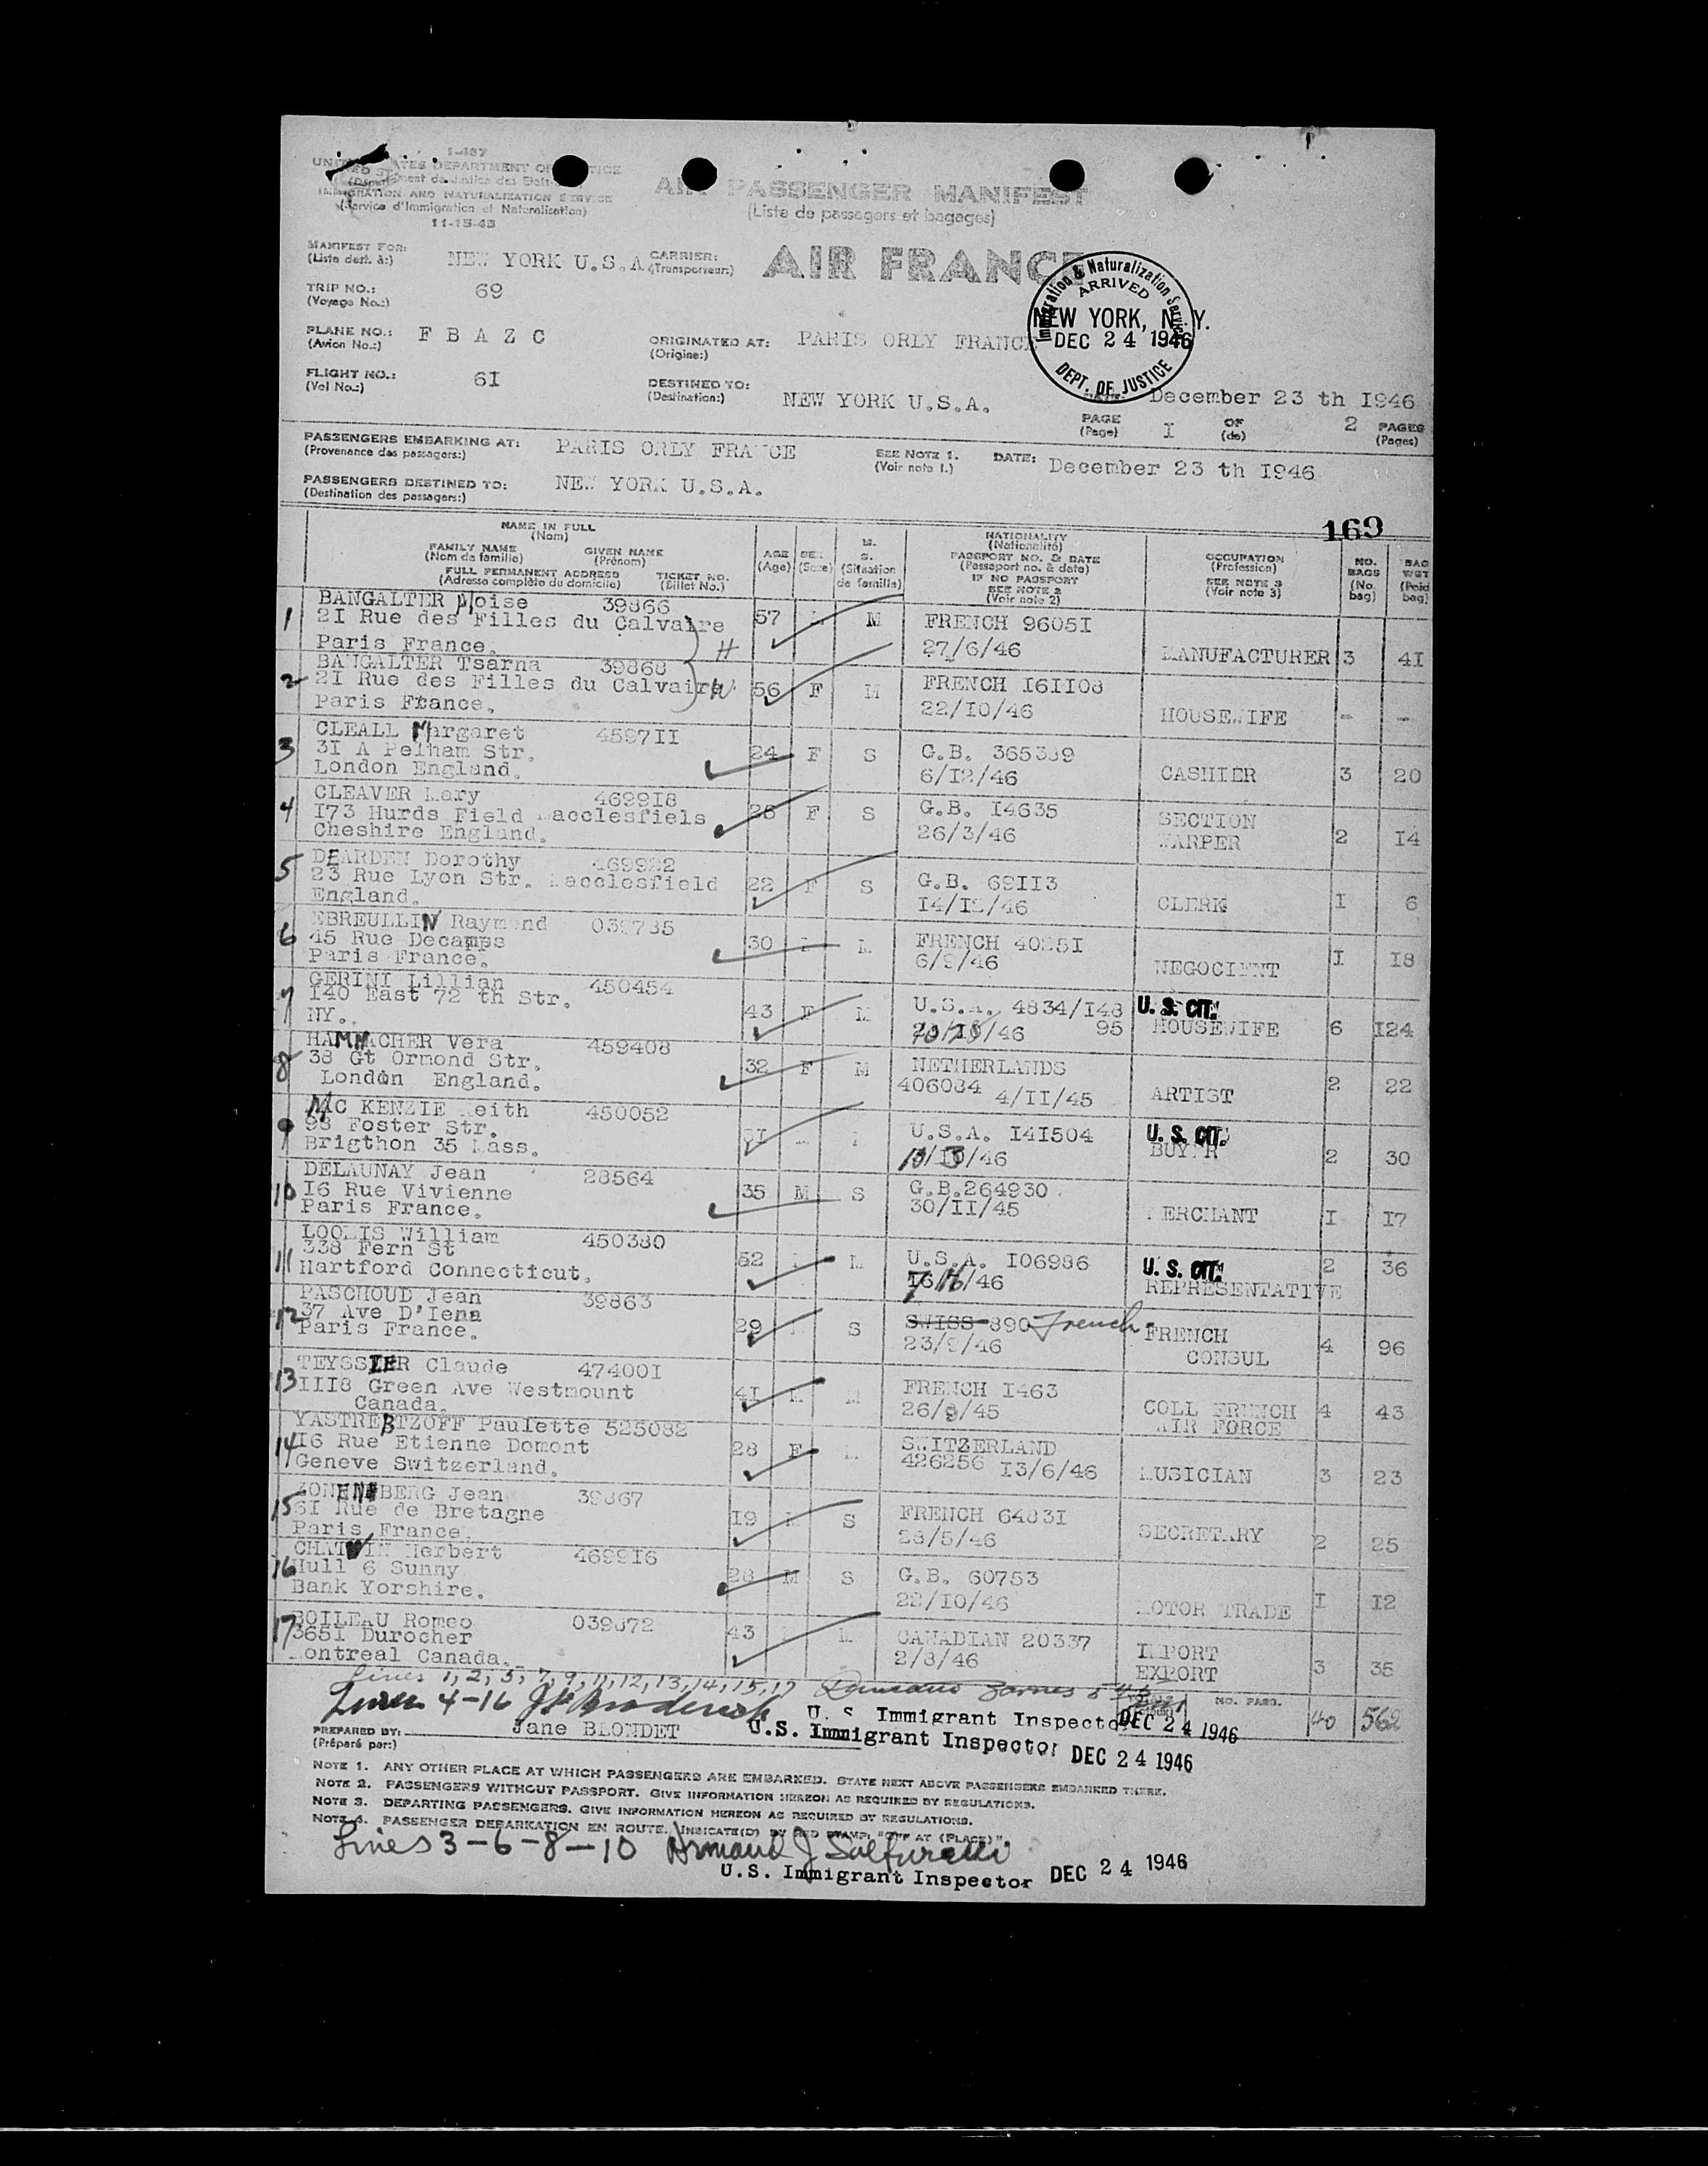 1-487
UNITED STATES DEPARTMENT OF JUSTICE
(Département de Justice des Etats-Unis)
IMMIGRATION AND NATURALIZATION SERVICE
(Service d'Immigration et Naturalization)
11-15-45
AIR PASSENGER MANIFEST
(Liste de passagers et bagages)
MANIFEST FOR: NEW YORK U.S.A. CARRIER: AIR FRANCE
(Liste dest. à:) (Transporteur:)
Immigration & Naturalization Service
ARRIVED
NEW YORK, N.Y.
DEC 24 1946
DEPT. OF JUSTICE
TRIP NO.: 69
(Voyage No.:)
PLANE NO.: F B A Z C ORIGINATED AT: PARIS ORLY FRANCE
(Avion No.:) (Origine:)
FLIGHT NO.: 6I DESTINED TO: NEW YORK U.S.A.
(Vol No.:) (Destination:)
December 23 th I946
PAGE I OF 2 PAGES
(Page) (de) (Pages)
PASSENGERS EMBARKING AT: PARIS ORLY FRANCE SEE NOTE 1. DATE: December 23 th I946
(Provenance des passagers:) (Voir note 1.)
PASSENGERS DESTINED TO: NEW YORK U.S.A.
(Destination des passagers:)
169
NAME IN FULL
(Nom)
FAMILY NAME GIVEN NAME
(Nom de famille) (Prénom)
FULL PERMANENT ADDRESS TICKET NO.
(Adresse complète du domicile) (Billet No.)
AGE
(Age)
SEX
(Sexe)
M.
S.
(Situation
de famille)
NATIONALITY
(Nationalité)
PASSPORT NO. & DATE
(Passeport no. & date)
IF NO PASSPORT
SEE NOTE 2
(Voir note 2)
OCCUPATION
(Profession)
SEE NOTE 3
(Voir note 3)
NO.
BAGS
(No.
bag)
BAG
WGT
(Poid
bag)
1 BANGALTER Moise 39866
2I Rue des Filles du Calvaire 57 M FRENCH 9605I
Paris France. H 27/6/46 MANUFACTURER 3 4I
2 BANGALTER Tsarna 39868
2I Rue des Filles du Calvaire W 56 F M FRENCH I6II08
Paris France. 22/IO/46 HOUSEWIFE - -
3 CLEALL Margaret 4597II
3I A Pelham Str. 24 F S G.B. 365389
London England. 6/I2/46 CASHIER 3 20
4 CLEAVER Mary 4699I8
I73 Hurds Field Macclesfiels 28 F S G.B. I4635 SECTION
Cheshire England. 26/3/46 WARPER 2 I4
5 DEARDEN Dorothy 469922
23 Rue Lyon Str. Macclesfield 22 F S G.B. 69II3
England. I4/I2/46 CLERK I 6
6 EBREULLIN Raymond 039785
45 Rue Decamps 30 M FRENCH 4025I
Paris France. 6/9/46 NEGOCIENT I I8
7 GERINI Lillian 450454
I40 East 72 th Str. 43 F M U.S.A. 4834/I48 U.S. CIT.
NY. /46 95 HOUSEWIFE 6 I24
8 HAMMACHER Vera 459408
38 Gt Ormond Str. 32 F M NETHERLANDS
London England. 406084 4/II/45 ARTIST 2 22
9 MC KENZIE Keith 450052
98 Foster Str. U.S.A. I4I504 U.S. CIT.
Brigthon 35 Mass. /46 BUYER 2 30
10 DELAUNAY Jean 28564
I6 Rue Vivienne 35 M S G.B.264930
Paris France. 30/II/45 MERCHANT I I7
11 LOOMIS William 450380
338 Fern St 52 M U.S.A. I06986 U.S. CIT. 2 36
Hartford Connecticut. /46 REPRESENTATIVE
12 PASCHOUD Jean 39863
37 Ave D'Iena 29 S SWISS 890 French FRENCH
Paris France. 23/9/46 CONSUL 4 96
13 TEYSSIER Claude 47400I
III8 Green Ave Westmount 4I M M FRENCH I463
Canada. 26/9/45 COLL FRENCH AIR FORCE 4 43
14 YASTREBTZOFF Paulette 525082
I6 Rue Etienne Domont 28 F M SWITZERLAND
Geneve Switzerland. 426256 I3/6/46 MUSICIAN 3 23
15 ZONENBERG Jean 39867
6I Rue de Bretagne I9 M S FRENCH 6483I
Paris France. 28/5/46 SECRETARY 2 25
16 CHATWIN Herbert 4699I6
Hull 6 Sunny 28 M S G.B. 60753
Bank Yorshire. 22/IO/46 MOTOR TRADE I I2
17 BOILEAU Romeo 039872
365I Durocher 43 M CANADIAN 20337 IMPORT
Montreal Canada. 2/8/46 EXPORT 3 35
Lines 1, 2, 5, 7, 9, 11, 12, 13, 14, 15, 17
Lines 4-16
U.S. Immigrant Inspector DEC 24 1946
NO. PASS. 40 562
PREPARED BY: Jane BLONDET U.S. Immigrant Inspector DEC 24 1946
(Préparé par:)
NOTE 1. ANY OTHER PLACE AT WHICH PASSENGERS ARE EMBARKED. STATE NEXT ABOVE PASSENGERS EMBARKED THERE.
NOTE 2. PASSENGERS WITHOUT PASSPORT. GIVE INFORMATION HEREON AS REQUIRED BY REGULATIONS.
NOTE 3. DEPARTING PASSENGERS. GIVE INFORMATION HEREON AS REQUIRED BY REGULATIONS.
NOTE 4. PASSENGER DEBARKATION EN ROUTE. INDICATE(D) BY RED STAMP, "OFF AT (PLACE)".
Lines 3-6-8-10 Armand J
U.S. Immigrant Inspector DEC 24 1946